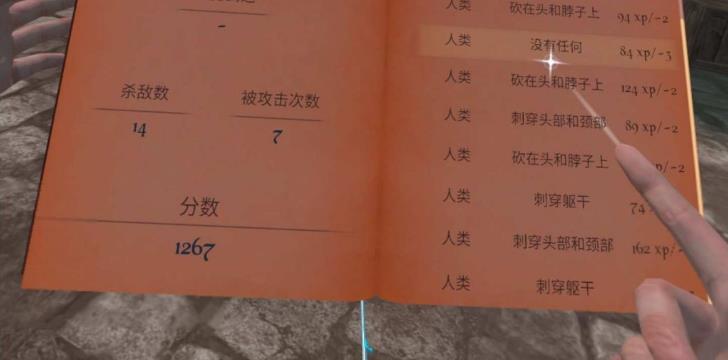 -
杀敌数
被攻击次数
14
7
分数
1267
人类 砍在头和脖子上 94 xp/-2
人类 没有任何 84 xp/-3
人类 砍在头和脖子上 124 xp/-2
人类 刺穿头部和颈部 89 xp/-2
人类 砍在头和脖子上 p/-2
人类 刺穿躯干 74
人类 刺穿头部和颈部 162 xp/-
人类 刺穿躯干